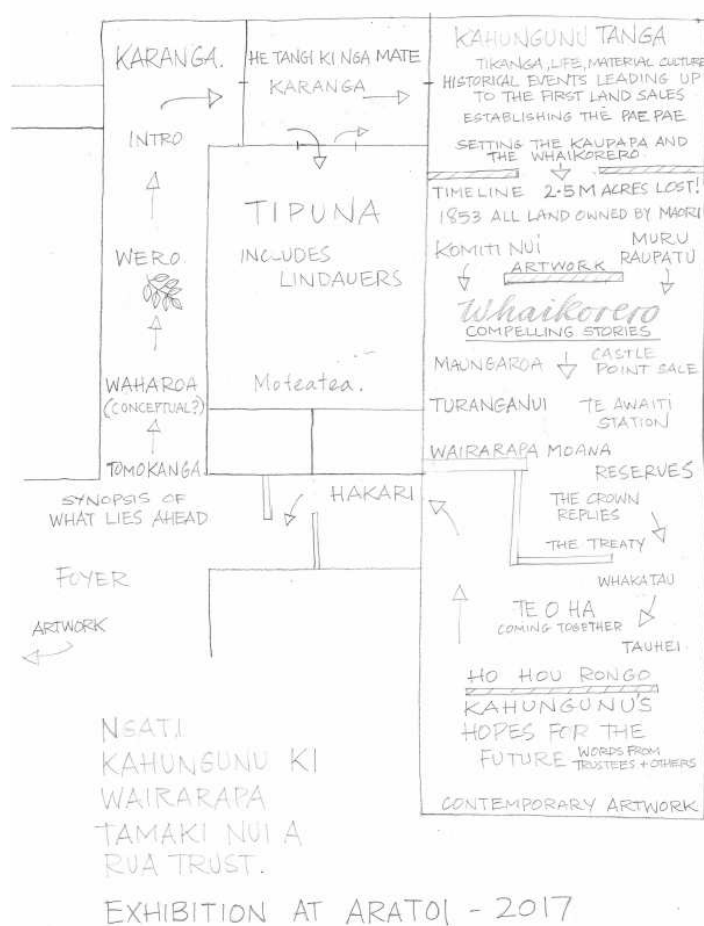 KARANGA.
INTRO
WERO
WAHAROA
(CONCEPTUAL?)
TOMOKANGA
SYNOPSIS OF
WHAT LIES AHEAD
FOYER
ARTWORK
HE TANGI KI NGA MATE
KARANGA
TIPUNA
INCLUDES
LINDAUERS
Moteatea.
HAKARI
KAHUNGUNU TANGA
TIKANGA, LIFE, MATERIAL CULTURE
HISTORICAL EVENTS LEADING UP
TO THE FIRST LAND SALES
ESTABLISHING THE PAE PAE
SETTING THE KAUPAPA AND
THE WHAIKORERO
TIMELINE 2.5M ACRES LOST!
1853 ALL LAND OWNED BY MAORI
KOMITI NUI
MURU
RAUPATU
ARTWORK
Whaikorero
COMPELLING STORIES
MAUNGAROA
CASTLE
POINT SALE
TURANGANUI
TE AWAITI
STATION
WAIRARAPA MOANA
RESERVES
THE CROWN
REPLIES
THE TREATY
WHAKATAU
TE O HA
COMING TOGETHER
TAUHEI
HO HOU RONGO
KAHUNGUNU'S
HOPES FOR THE
FUTURE WORDS FROM
TRUSTEES + OTHERS
CONTEMPORARY ARTWORK
NGATI
KAHUNGUNU KI
WAIRARAPA
TAMAKI NUI A
RUA TRUST.
EXHIBITION AT ARATOI - 2017